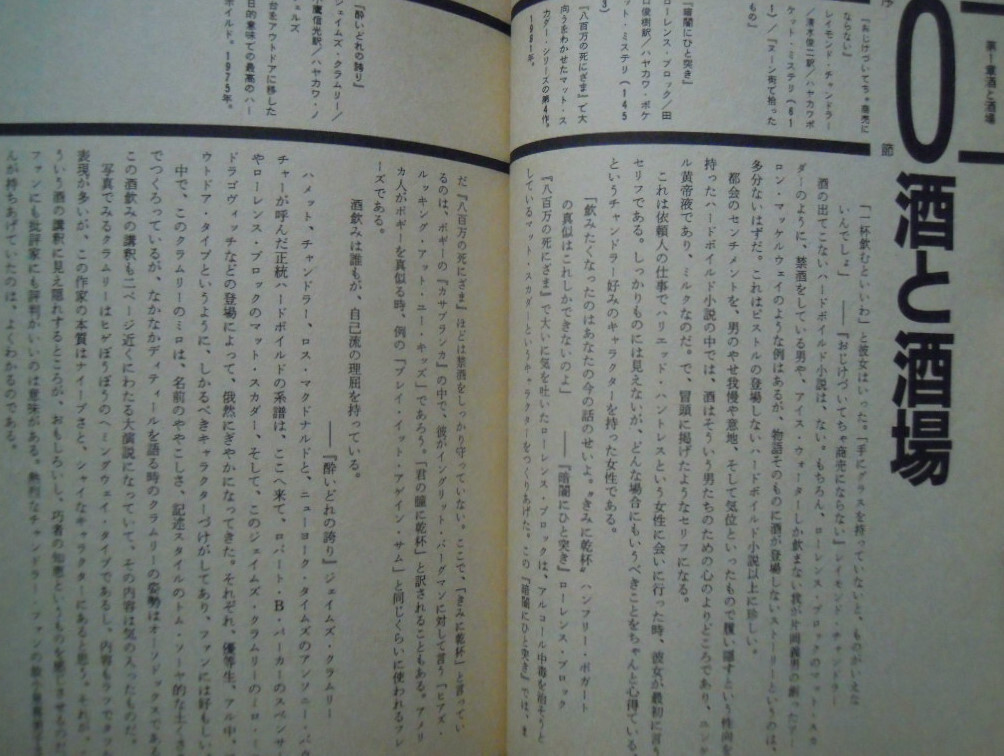 第1章酒と酒場
序
0
節
酒と酒場
『おじけづいてちゃ商売に
ならない』
レイモンド・チャンドラー
／清水俊二訳／ハヤカワポ
ケット・ミステリ（61
1）／『ヌーン街で拾った
もの』
『暗闇にひと突き』
ローレンス・ブロック／田
口俊樹訳／ハヤカワ・ポケ
ット・ミステリ（145
『八百万の死にざま』で大
向うをわかせたマット・ス
カダー・シリーズの第4作。
1981年。
「一杯飲むといいわ」と彼女はいった。「手にグラスを持っていないと、ものがいえな
いんでしょ」 ――『おじけづいてちゃ商売にならない』レイモンド・チャンドラー
酒の出てこないハードボイルド小説は、ない。もちろん、ローレンス・ブロックのマット・スカ
ダーのように、禁酒をしている男や、アイス・ウォーターしか飲まない我が片岡義男の
ロン・マッケルウェイのような例はあるが、物語そのものに酒が登場しないストーリーというのは、
多分ないはずだ。これはピストルの登場しないハードボイルド小説以上に珍しい。
都会のセンチメントを、男のやせ我慢や意地、そして気位といったもので覆い隠すという性向を
持ったハードボイルド小説の中では、酒はそういう男たちのための心のよりどころであり、
ル黄帝液であり、ミルクなのだ。で、冒頭に掲げたようなセリフになる。
これは依頼人の仕事でハリエッド・ハントレスという女性に会いに行った時、彼女が最初に言う
セリフである。しっかりものには見えないが、どんな場合にもいうべきことをちゃんと心得ている、
というチャンドラー好みのキャラクターを持った女性である。
「飲みたくなったのはあなたの今の話のせいよ。〝きみに乾杯〟ハンフリー・ボガート
の真似はこれしかできないのよ」 ――『暗闇にひと突き』ローレンス・ブロック
『八百万の死にざま』で大いに気を吐いたローレンス・ブロックは、アルコール中毒を治そうと
しているマット・スカダーというキャラクターをつくりあげた。この『暗闇にひと突き』では、ま
『酔いどれの誇り』
ジェイムズ・クラムリー／
小鷹信光訳／ハヤカワ・ノ
ヴェルズ
台をアウトドアに移した
日的意味での最高のハー
ボイルド。1975年。
だ『八百万の死にざま』ほどは禁酒をしっかり守っていない。ここで、「きみに乾杯」と言ってい
るのは、ボギーの『カサブランカ』の中で、彼がイングリット・バーグマンに対して言う「ヒアズ・
ルッキング・アット・ユー・キッズ」であろう。「君の瞳に乾杯」と訳されることもある。アメリ
カ人が、ボギーを真似る時、例の「プレイ・イット・アゲイン・サム」と同じくらいに使われるフレ
ーズである。
酒飲みは誰もが、自己流の理屈を持っている。
――『酔いどれの誇り』ジェイムズ・クラムリー
ハメット、チャンドラー、ロス・マクドナルドと、ニューヨーク・タイムズのアンソニー・バウ
チャーが呼んだ正統ハードボイルドの系譜は、ここへ来て、ロバート・B・パーカーのスペンサ
やローレンス・ブロックのマット・スカダー、そして、このジェイムズ・クラムリーのミロ・
ドラゴヴィッチなどの登場によって、俄然にぎやかになってきた。それぞれ、優等生、アル中、
ウトドア・タイプというように、しかるべきキャラクターづけがしてあり、ファンには好もしい。
中で、このクラムリーのミロは、名前のややこしさ、記述スタイルのトム・ソーヤ的な土くさ
でつくろっているが、なかなかディティールを語る時のクラムリーの姿勢はオーソドックスである
この酒飲みの講釈も二ページ近くにわたる大演説になっていて、その内容は気の入ったものだ。
写真でみるクラムリーはヒゲぼうぼうのヘミングウェイ・タイプであるし、内容もラフでタフ
表現が多いが、この作家の本質はナイーブさと、シャイなキャラクターにあると思う。それが、
ういう酒の講釈に見え隠れするところが、おもしろいし、巧者の知恵というものを感じさせるのだ
ファンにも批評家にも評判がいいのは意味がある。熱烈なチャンドラー・ファンの
んが持ちあげていたのは、よくわかるのである。